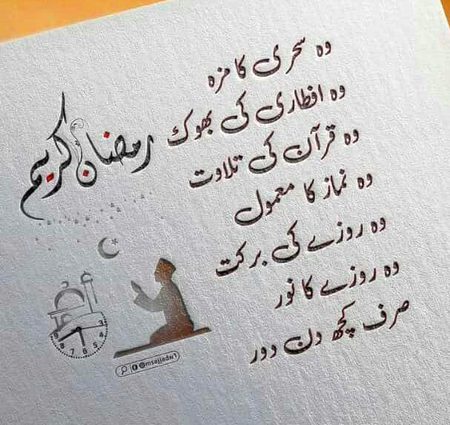 وہ سحری کا مزہ
وہ افطاری کی بھوک
وہ قرآن کی تلاوت
وہ نماز کا معمول
وہ روزے کی برکت
وہ روزے کا نور
صرف کچھ دن دور
رمضان کریم
8 7 6 5 4 3
@msajjadw1